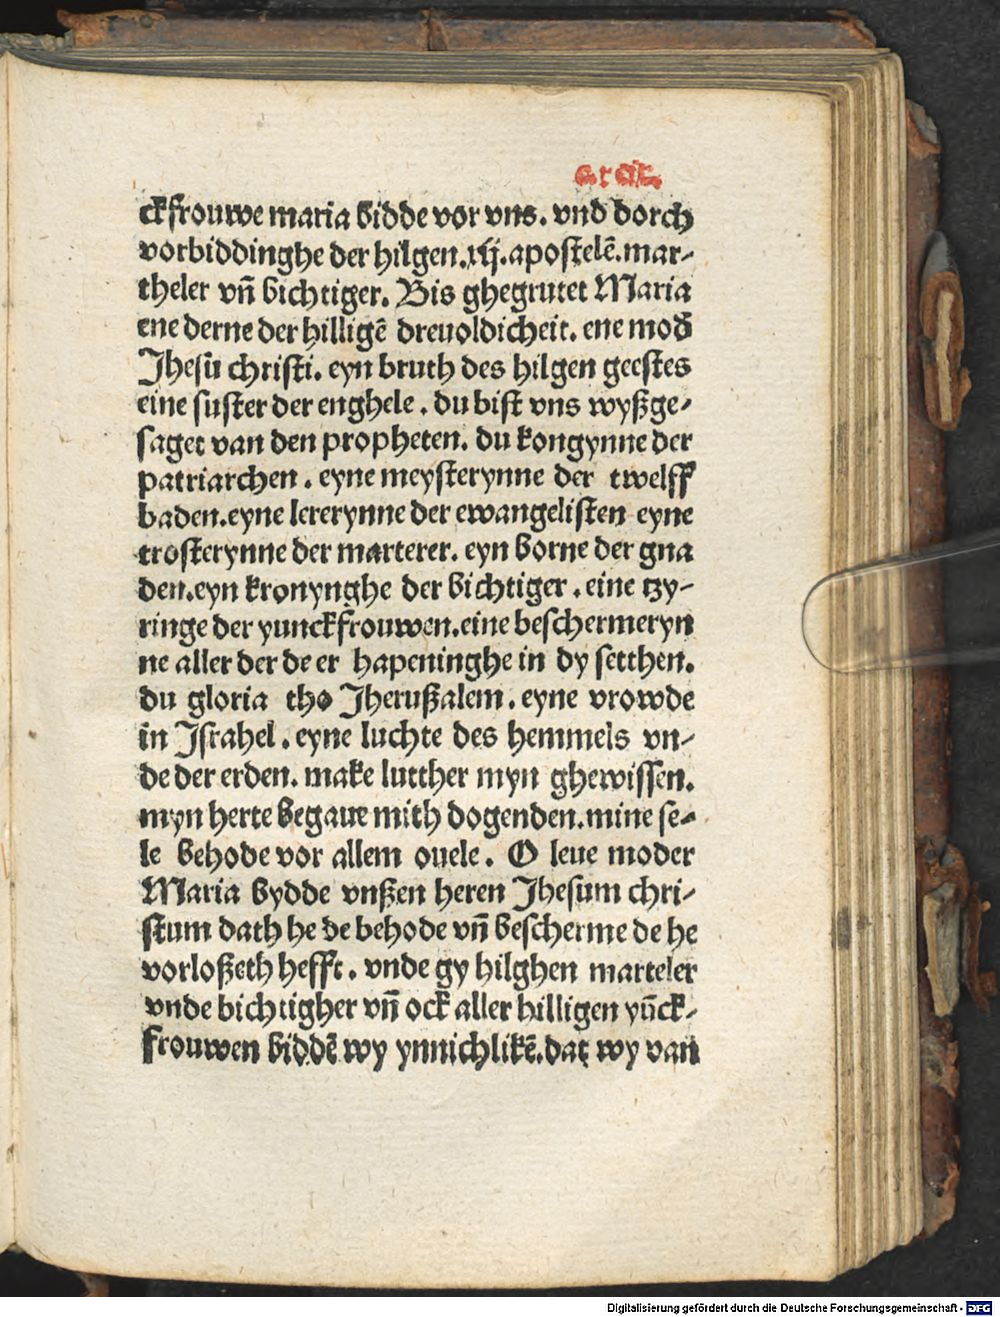 ckfrouwe maria bidde vor vns. vnd dorch
vorbiddinghe der hilgen.xij.apostelē.mar-
theler vn̄ bichtiger. Bis ghegrutet Maria
ene derne der hilligē dreuoldicheit. ene mod̄
Jhesū christi. eyn bruth des hilgen geestes
eine suster der enghele. du bist vns wyßge-
saget van den propheten. du kongynne der
patriarchen. eyne meysterynne der twelff
baden.eyne lererynne der ewangelisten eyne
trosterynne der marterer. eyn borne der gna
den.eyn kronynghe der bichtiger. eine tzy-
ringe der yunckfrouwen.eine beschermeryn
ne aller der de er hapeninghe in dy setthen.
du gloria tho Jherußalem. eyne vrowde
in Jsrahel. eyne luchte des hemmels vn-
de der erden. make lutther myn ghewissen.
myn herte begaue mith dogenden.mine se-
le behode vor allem ouele. O leue moder
Maria bydde vnßen heren Jhesum chri-
stum dath he de behode vn̄ bescherme de he
vorloßeth hefft. vnde gy hilghen marteler
vnde bichtigher vn̄ ock aller hilligen yūck-
frouwen biddē wy ynnichlikē.dat wy van
Digitalisierung gefördert durch die Deutsche Forschungsgemeinschaft - DFG